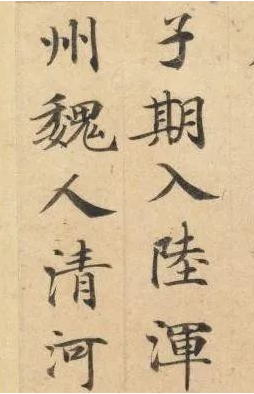 子期入陸渾
州魏人清河